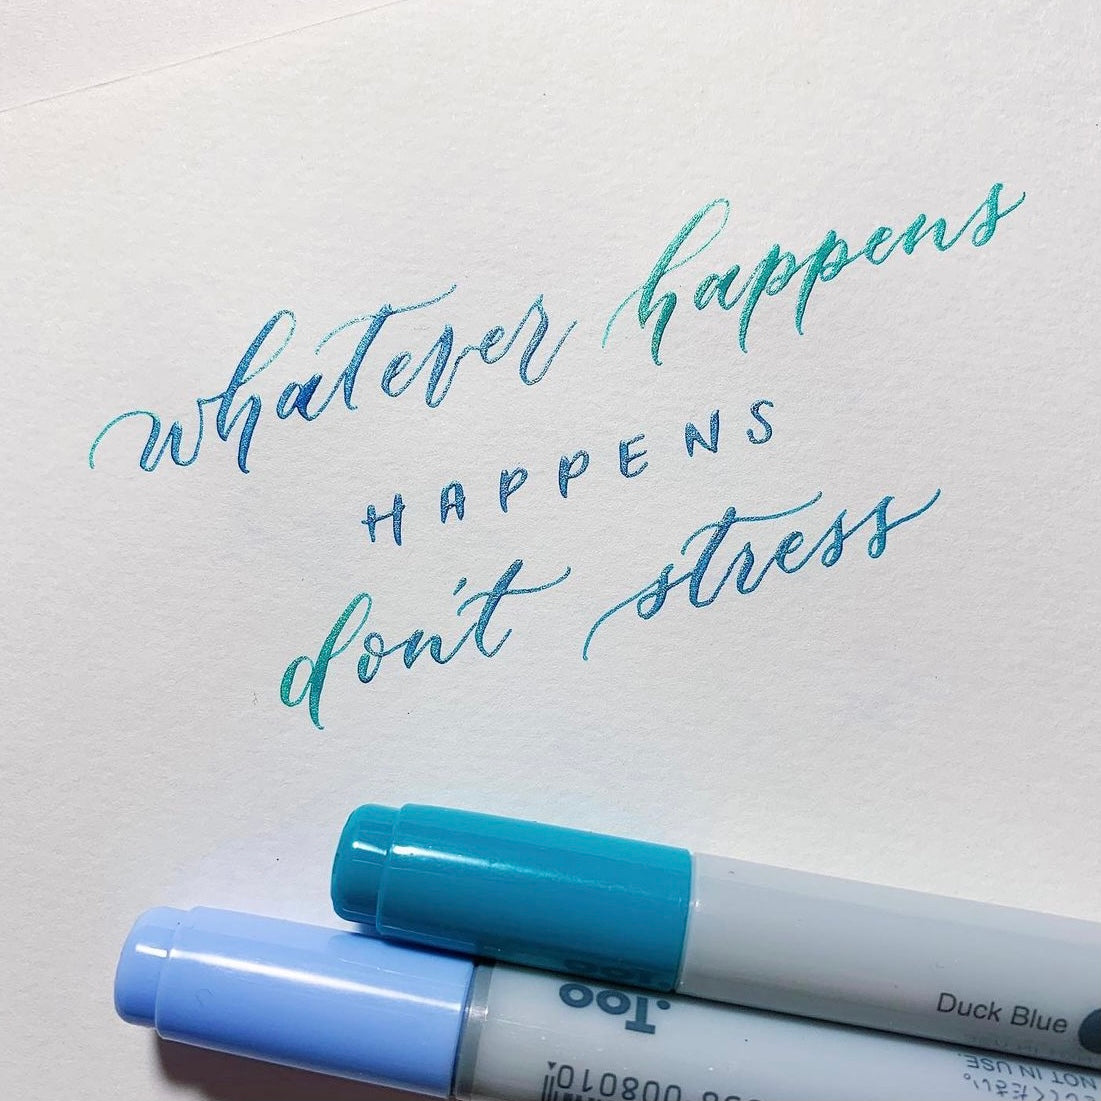 whatever happens
HAPPENS
don't stress
Duck Blue
.Too
008010
NOT IN USE.
ください。